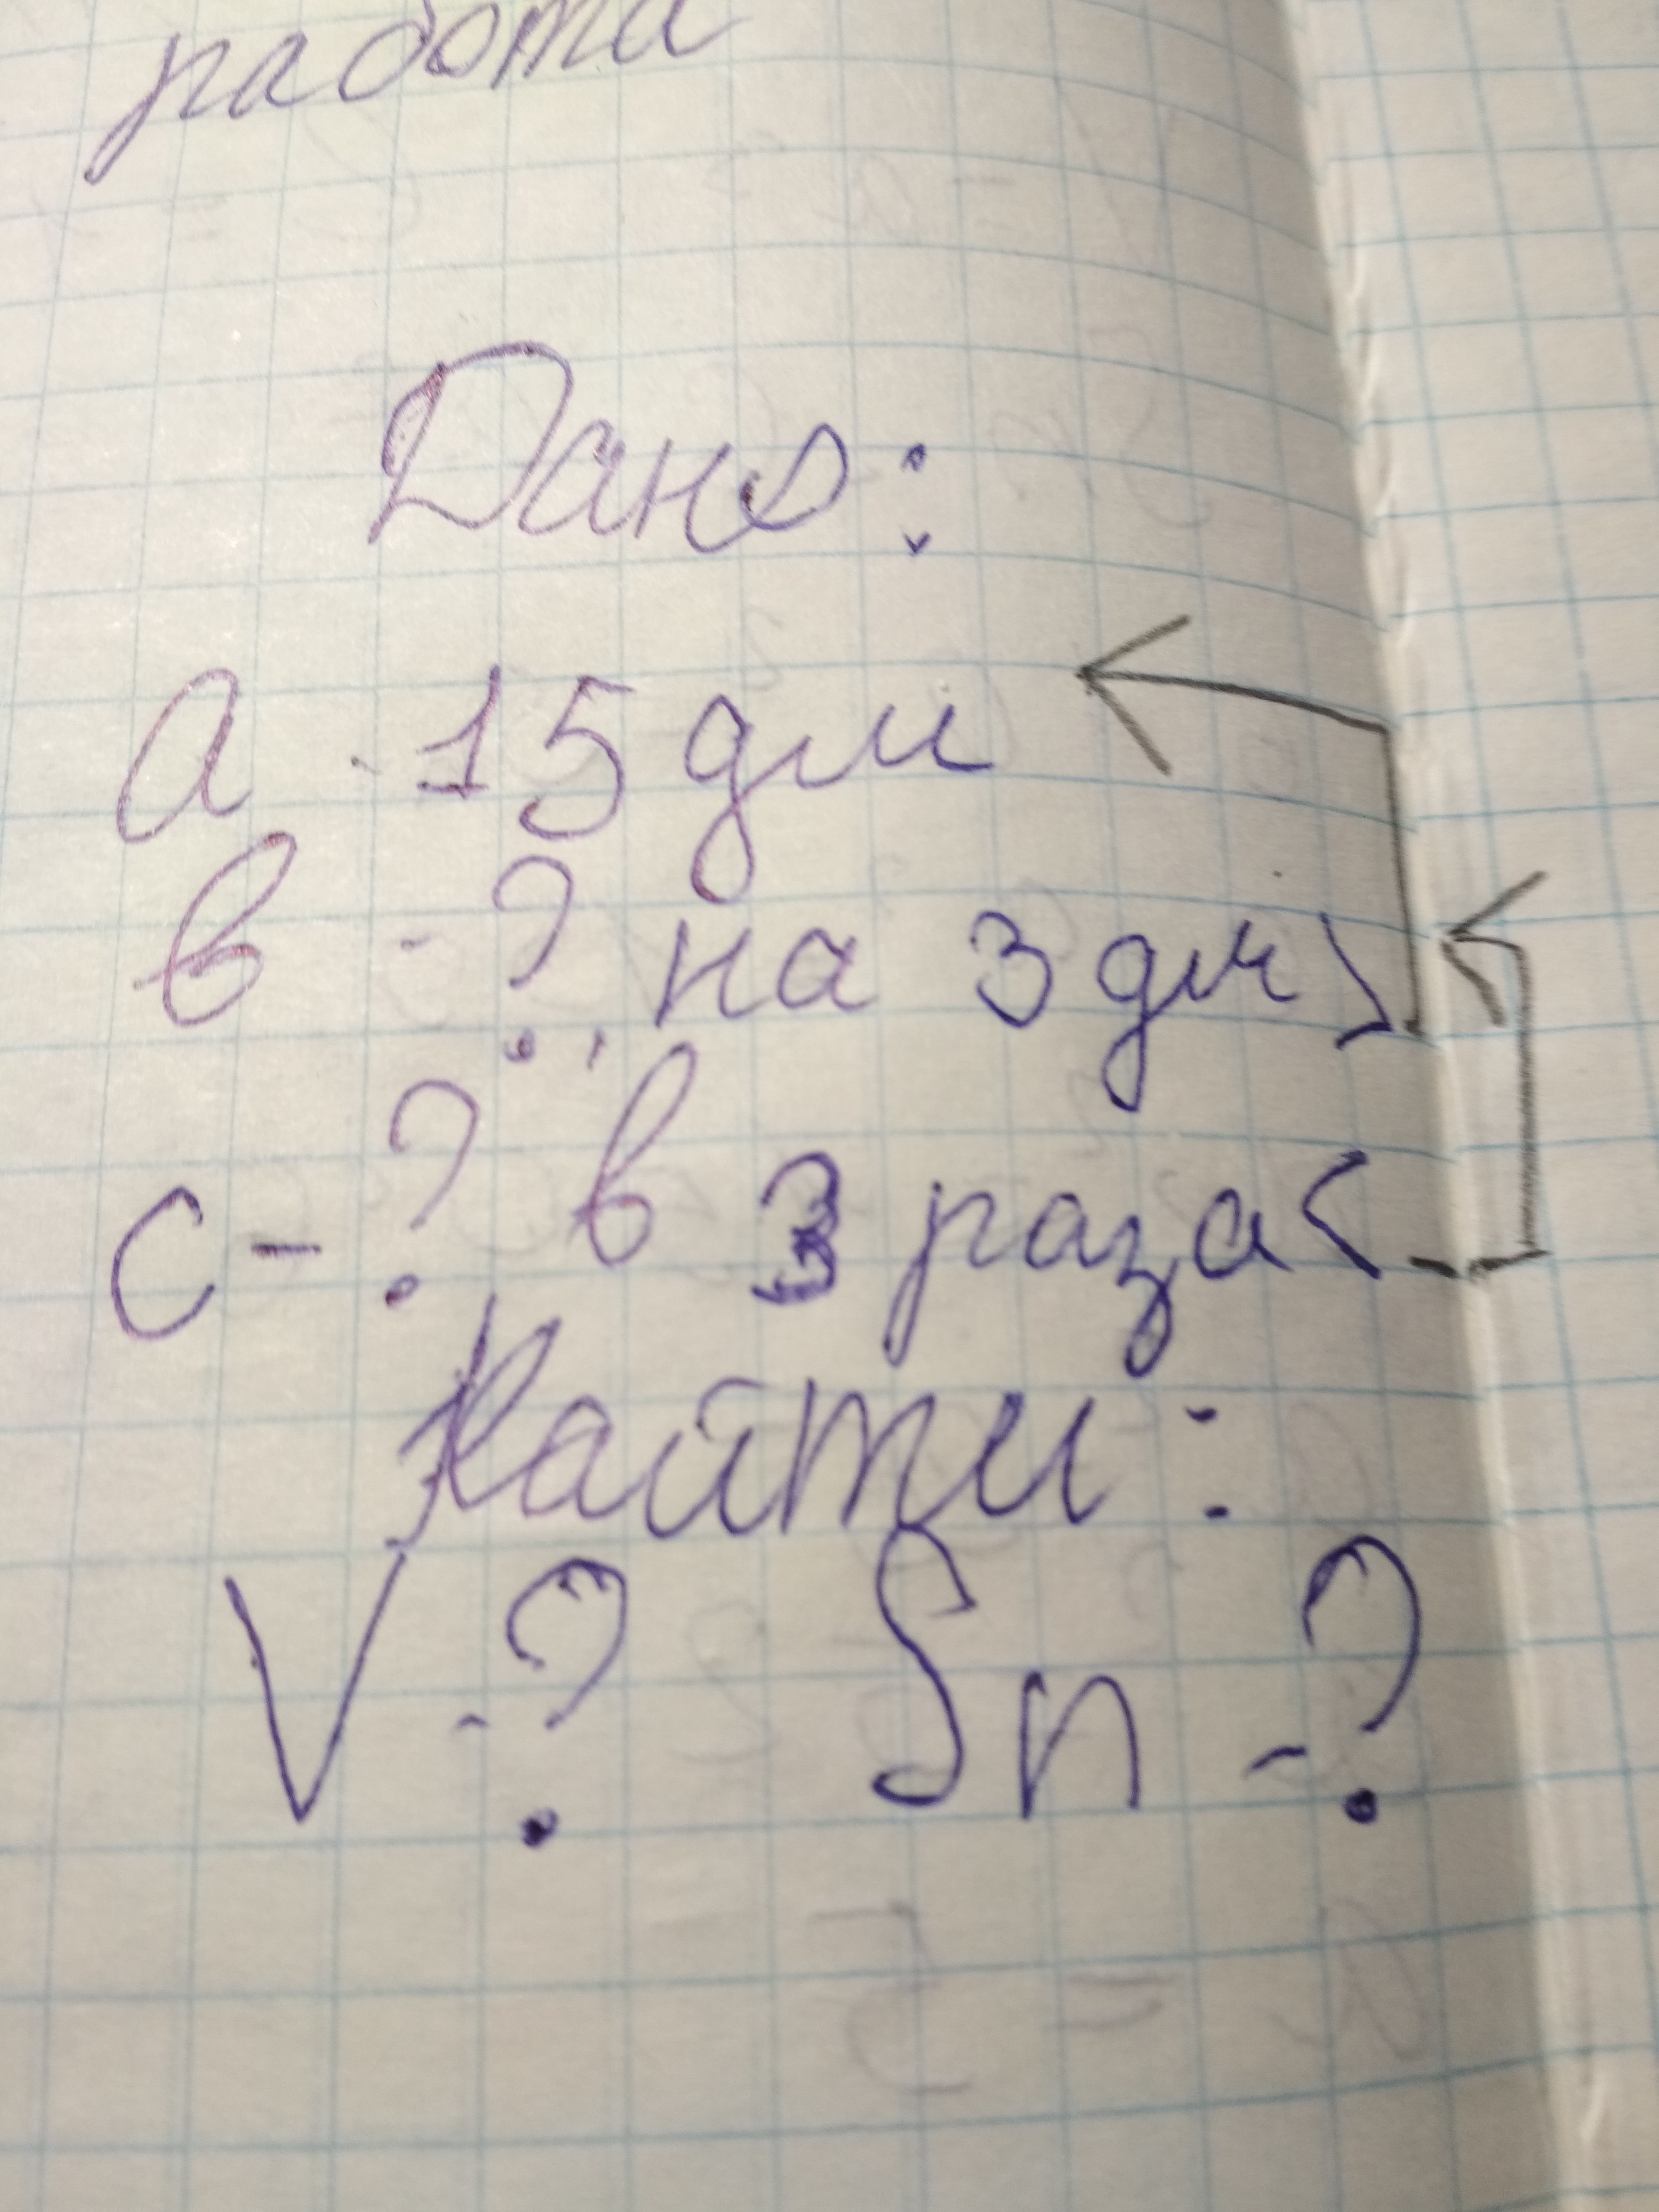 работа
Дано:
а - 15 дм
в - ?, на 3 дм >
с - ? в 3 раза <
Найти:
V - ? Sп - ?